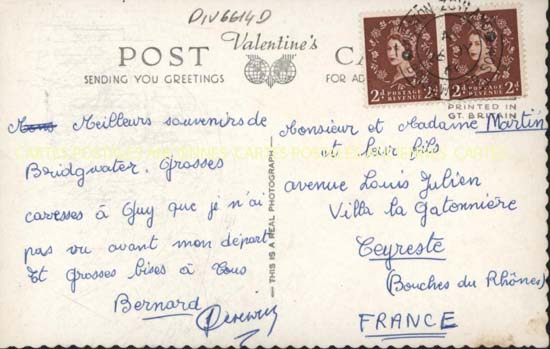 DIV6614D
POST Valentine's CA
SENDING YOU GREETINGS FOR AD
2d POSTAGE REVENUE 2d POSTAGE REVENUE 2d
PRINTED IN
GT. BRITAIN
Meilleurs souvenirs de
Bridgwater. Grosses
caresses à Guy que je n'ai
pas vu avant mon départ
Et grosses bises à tous
Bernard
THIS IS A REAL PHOTOGRAPH
Monsieur et Madame Martin
et leur fils
avenue Louis Julien
Villa la Gatonnière
Ceyreste
(Bouches du Rhônes)
FRANCE
CARTES POSTALES ANCIENNES CARTES POSTALES ANCIENNES CARTES